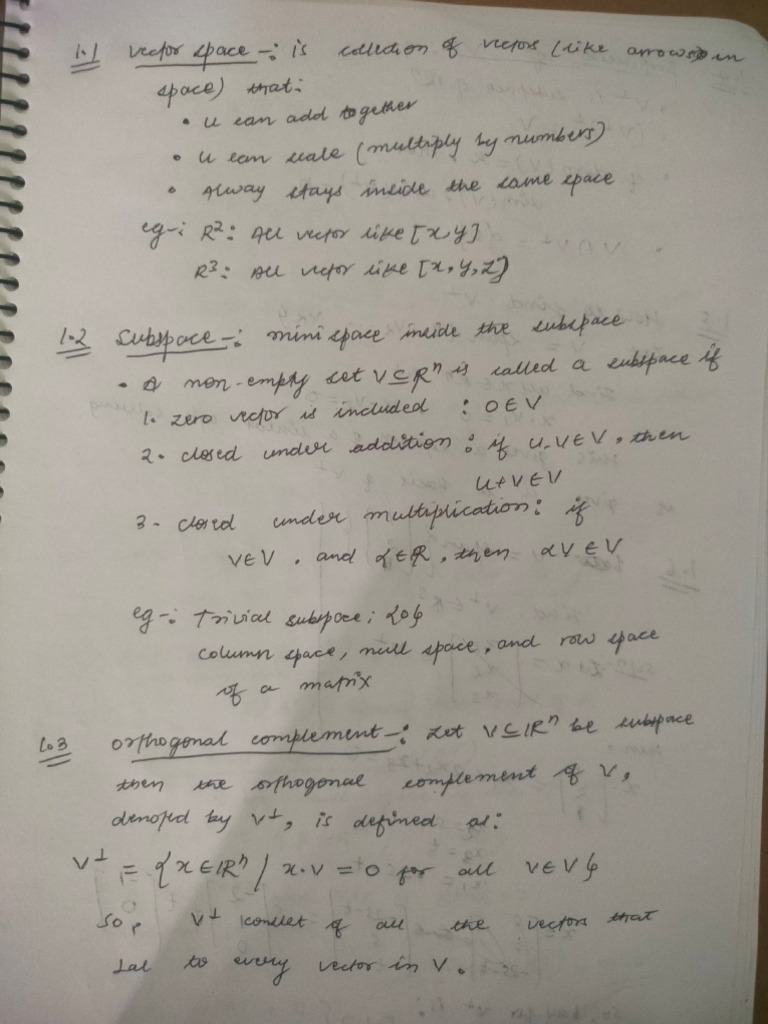 1.1 vector space -: is collection of vectors (like arrows in
space) that:
• u can add together
• u can scale (multiply by numbers)
• Alway stays inside the same space
eg-: R²: All vector like [x,y]
R³: All vector like [x,y,z]
1.2 Subspace -: mini space inside the subspace
• A non-empty set V⊆Rⁿ is called a subspace if
1. zero vector is included : 0∈V
2. closed under addition : if u,v∈V, then
u+v∈V
3. closed under multiplication: if
v∈V, and α∈R, then αV∈V
eg-: Trivial subspace; {0}
column space, null space, and row space
of a matrix
1.3 orthogonal complement -: Let V⊆IRⁿ be subspace
then the orthogonal complement of V,
denoted by V⊥, is defined as:
V⊥ = {x∈IRⁿ / x·v = 0 for all v∈V}
So, V⊥ consist of all the vectors that
⊥al to every vector in V.